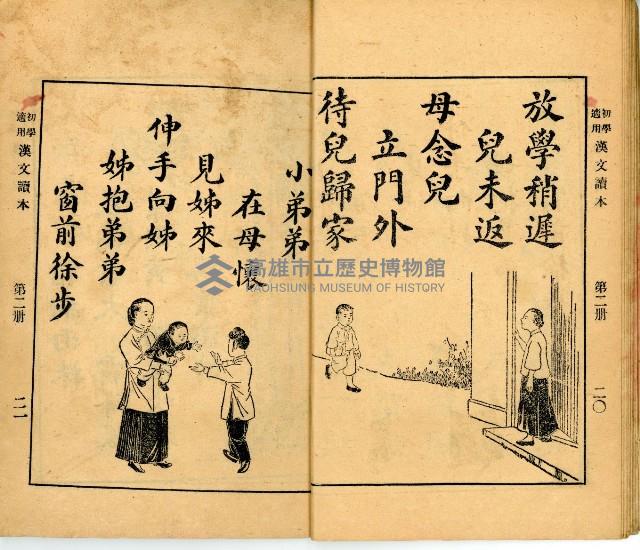 初學適用 漢文讀本 第二册 二〇
放學稍遲
兒未返
母念兒
立門外
待兒歸家
小弟弟
在母懷
見姊來
伸手向姊
姊抱弟弟
窗前徐步
初學適用 漢文讀本 第二册 二一
高雄市立歷史博物館
KAOHSIUNG MUSEUM OF HISTORY